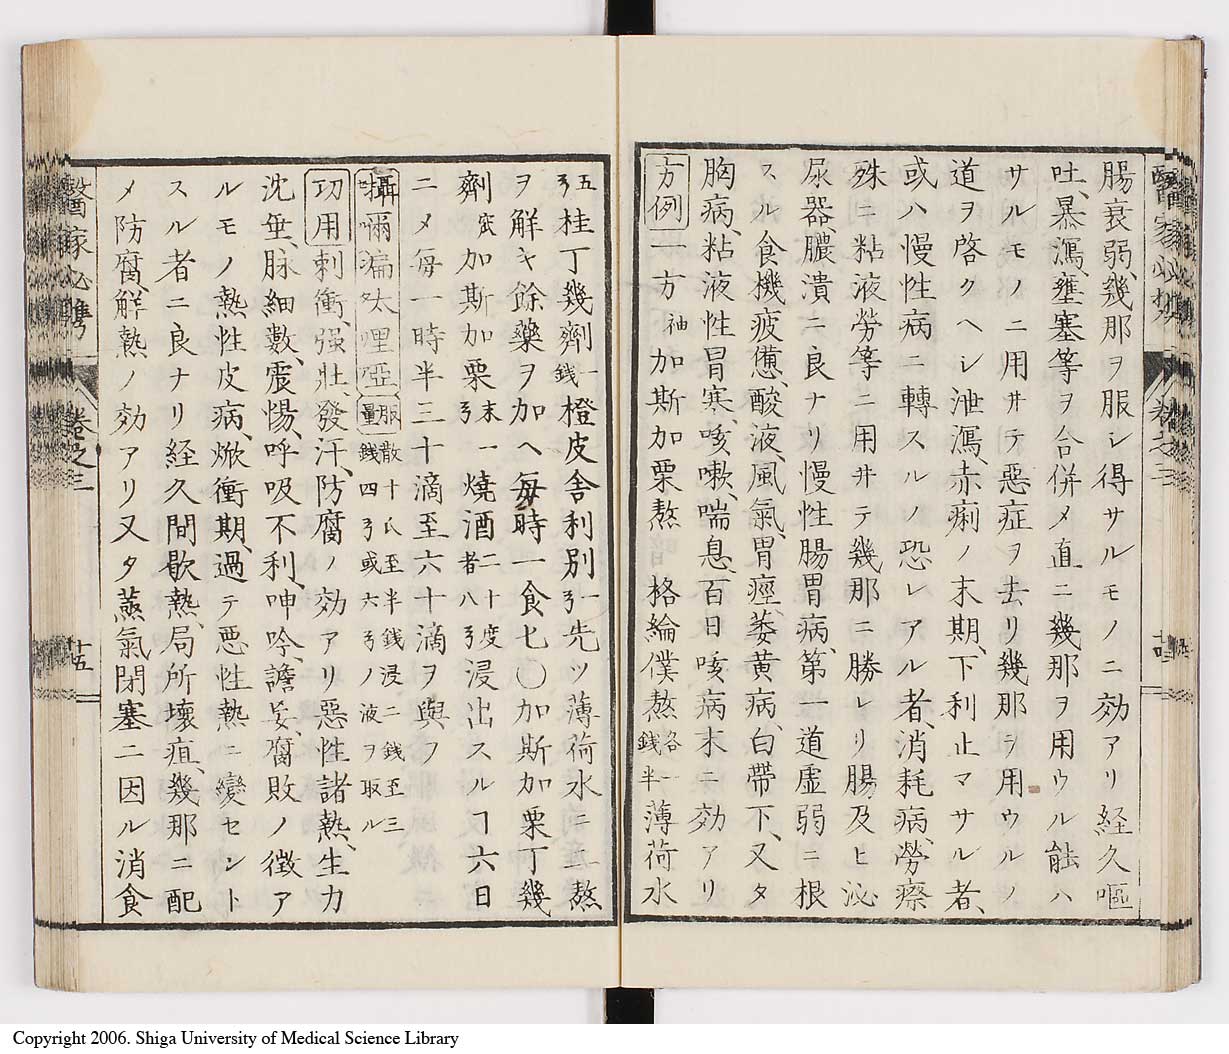 腸衰弱、幾那ヲ服シ得サルモノニ効アリ経久嘔
吐、暴瀉、壅塞等ヲ合併メ直ニ幾那ヲ用ウル能ハ
サルモノニ用井テ惡症ヲ去リ幾那ヲ用ウルノ
道ヲ啓クヘシ泄瀉、赤痢ノ末期、下利止マサル者、
或ハ慢性病ニ轉スルノ恐レアル者、消耗病、勞瘵
殊ニ粘液勞等ニ用井テ幾那ニ勝レリ腸及ヒ泌
尿器、膿潰ニ良ナリ慢性腸胃病、第一道虚弱ニ根
スル食機疲憊、酸液、風氣、胃痙、萎黄病、白帶下、又タ
胸病、粘液性冒寒、咳嗽、喘息、百日咳病末ニ効アリ
方例 一方 袖 加斯加栗熬 格綸僕熬 各一錢半 薄荷水
五ヲ桂丁幾劑 一錢 橙皮舎利別 一ヲ 先ツ薄荷水ニ熬
ヲ解キ餘藥ヲ加ヘ每時一食匕〇加斯加栗丁幾
劑 窊 加斯加栗 末一ヲ 燒酒 二十度者八ヲ 浸出スルヿ六日
ニメ每一時半三十滴至六十滴ヲ與フ
攝爾扁太里啞 服量 散十瓜至半錢浸二錢至三錢四ヲ或六ヲノ液ヲ取ル
功用 刺衝强壯、發汗、防腐ノ効アリ惡性諸熱、生力
沈垂、脉細數、震惕、呼吸不利、呻吟、譫妄、腐敗ノ徴ア
ルモノ熱性皮病、焮衝期、過テ惡性熱ニ變セント
スル者ニ良ナリ経久間歇熱、局所壞疽、幾那ニ配
メ防腐、解熱ノ効アリ又タ蒸氣閉塞ニ因ル消食
醫家必携
卷之三
十四
醫家必携
卷之三
廿五
Copyright 2006. Shiga University of Medical Science Library